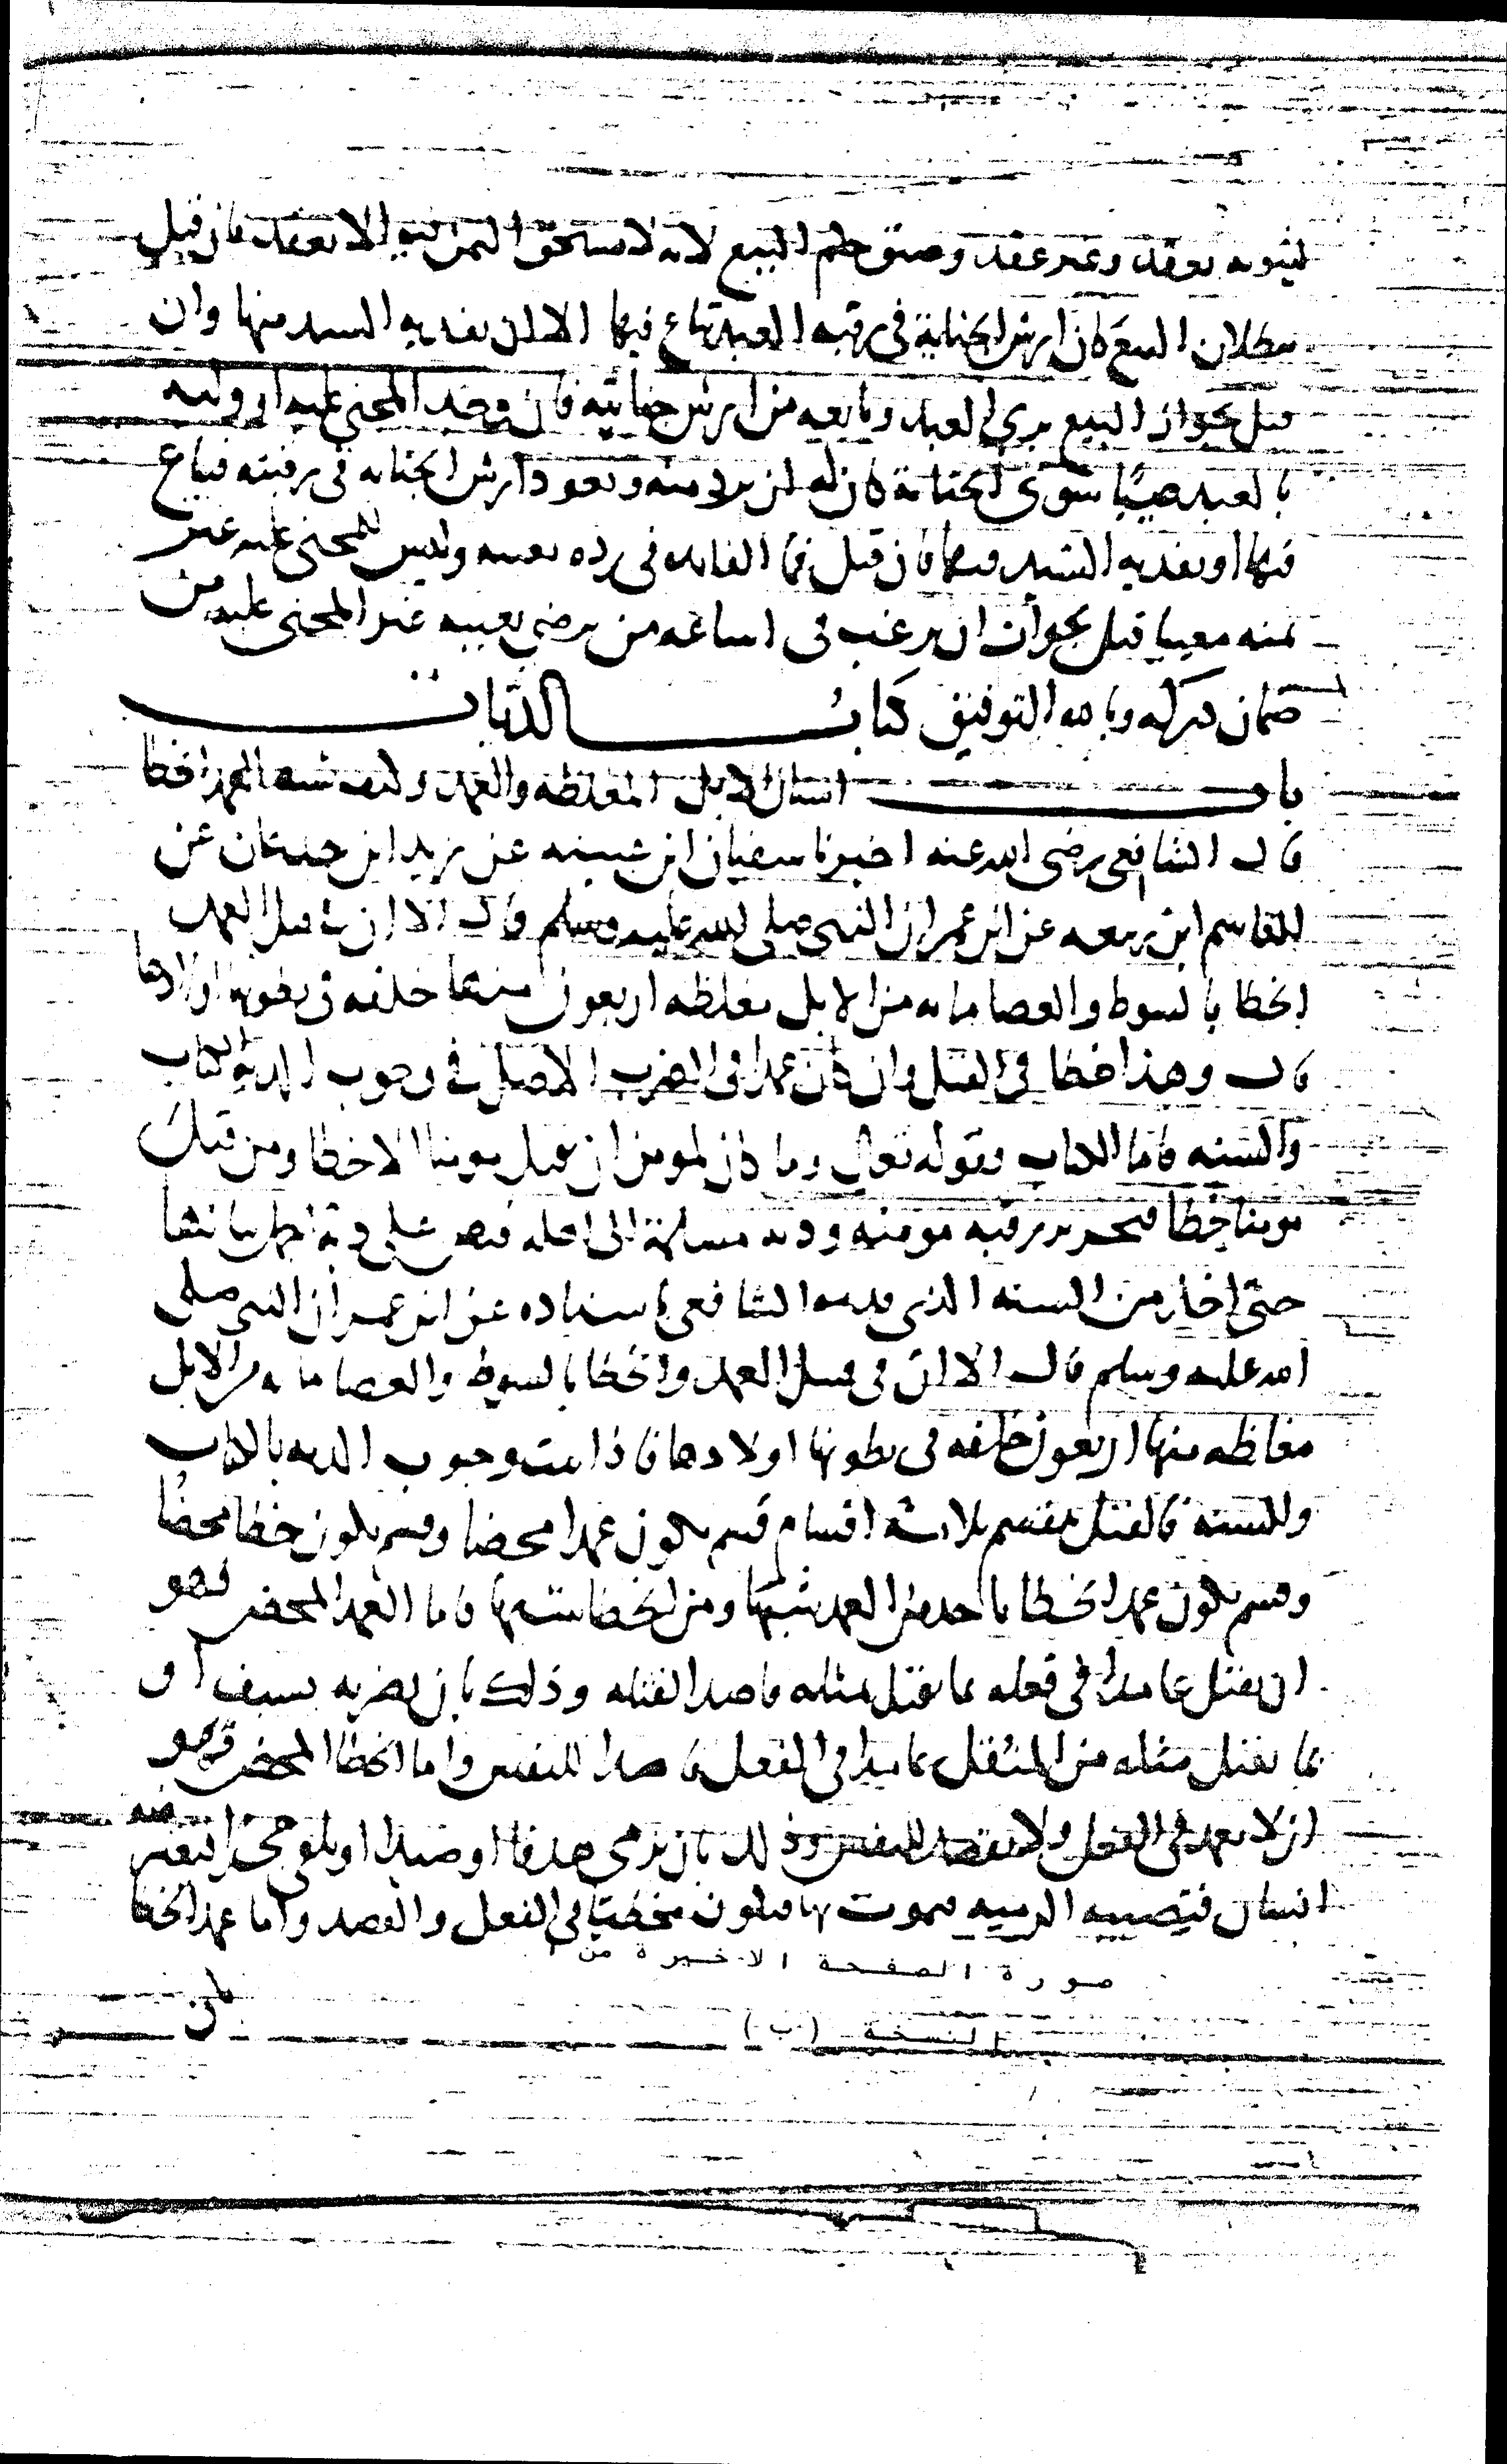 لثبوته بعقد وغير عقد وضيق حكم البيع لانه لا يستحق الثمن فيه الا بعقد فان قيل
ببطلان البيع كان ارش الجناية في رقبة العبد يباع فيها الا ان يفديه السيد منها وان
قيل بجواز البيع بري العبد وبايعه من ارش جنايته فان وجد المجني عليه او وليه
بالعبد عيبا سوى الجناية كان له ان يرده منه ويعود ارش الجناية في رقبته فيباع
فيها او يفديه السيد منها فان قيل فما الفايده في رده بعيبه وليس للمجني عليه غير
ثمنه معيبا قيل يجوز ان يرغب في ابتياعه من يرضى بعيبه غير المجني عليه من
ضمان دركه وبالله التوفيق كتاب الديات
باب اسنان الابل المغلظة والعمد وكيف شبه العمد الخطا
قال الشافعي رضي الله عنه اخبرنا سفيان ابن عيينه عن يزيد ابن جدعان عن
القاسم ابن ربيعه عن ابن عمر ان النبي صلى الله عليه وسلم قال الا ان في قتل العمد
الخطا بالسوط والعصا مايه من الابل مغلظه اربعون منها خلفه في بطونها اولادها
قال وهذا خطا في القتل وان كان عمدا في الضرب الاصل في وجوب الديه الكتاب
والسنه فاما الكتاب فقوله تعالى وما كان لمومن ان يقتل مومنا الا خطا ومن قتل
مومنا خطا فتحرير رقبه مومنه وديه مسلمة الى اهله فنص على دية اجمل بيانها
حتى اخذ من السنه الذي قدمه الشافعي باسناده عن ابن عمر ان النبي صلى
الله عليه وسلم قال الا ان في قتل العمد والخطا بالسوط والعصا مايه من الابل
مغلظه منها اربعون خلفه في بطونها اولادها فاذا ثبت وجوب الديه بالكتاب
والسنه فالقتل ينقسم ثلاثه اقسام قسم يكون عمدا محضا وقسم يكون خطا محضا
وقسم يكون عمد الخطا ياخذ من العمد شبها ومن الخطا شبها فاما العمد المحض فهو
ان يقتل عامدا في فعله بما يقتل مثله قاصدا لقتله وذلك بان يضربه بسيف او
بما يقتل مثله من المثقل عامدا في الفعل قاصدا للنفس واما الخطا المحض فهو
ان لا يعمد في الفعل ولا يقصد النفس وذلك بان يرمي هدفا او صيدا او يلقي حجرا فيعترضه
انسان فتصيبه الرميه فيموت بها فيكون مخطيا في الفعل والقصد واما عمد الخطا
صورة الصفحة الاخيرة من
النسخة (ب)